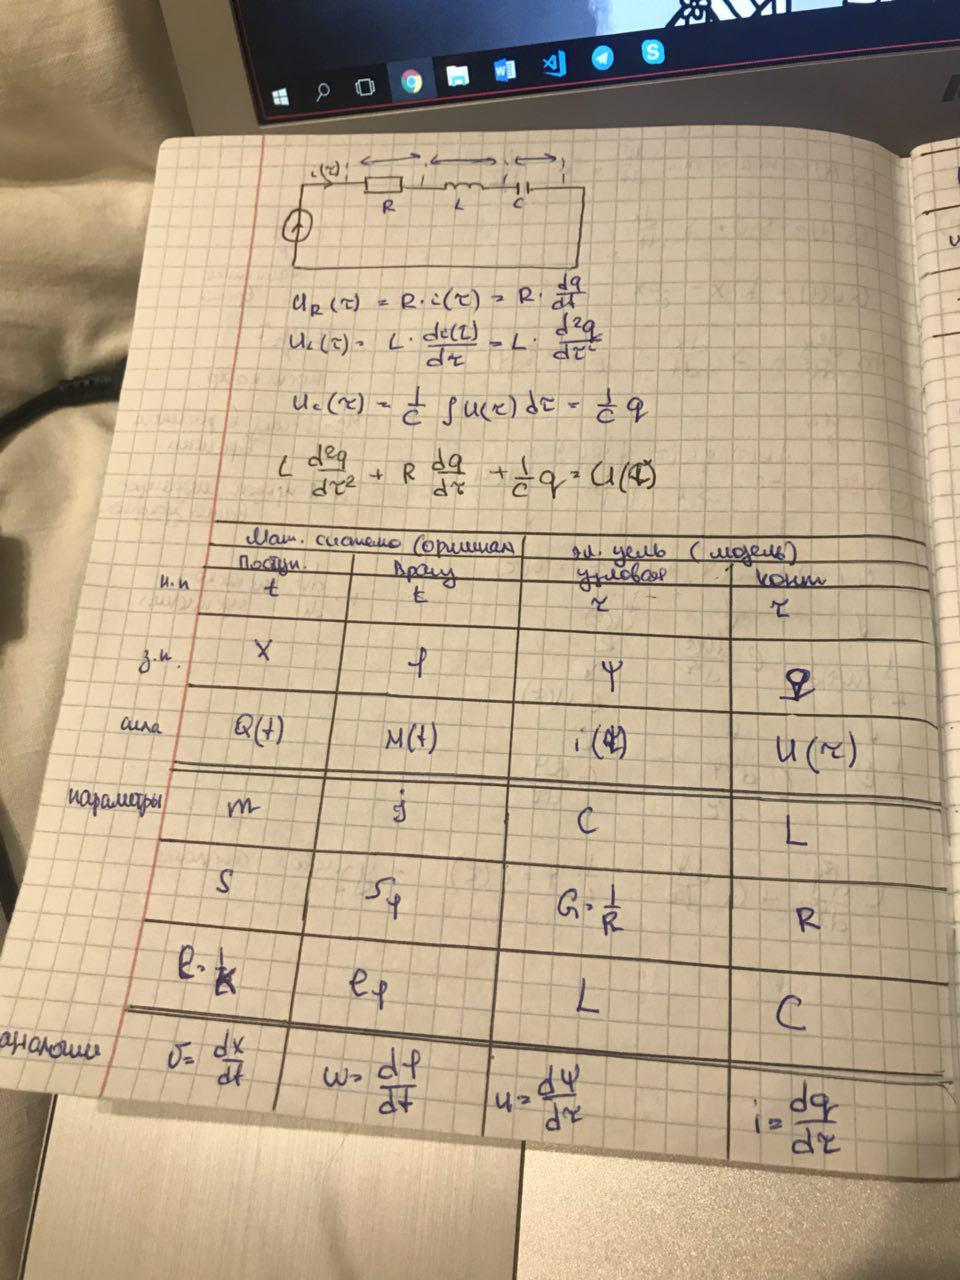 i(τ)
R L C
u_R(τ) = R·i(τ) = R·dq/dt
u_L(τ) = L·di(τ)/dτ = L·d²q/dτ²
u_c(τ) = 1/C ∫U(τ)dτ = 1/C q
L d²q/dτ² + R dq/dτ + 1/C q = U(τ)
Мат. система (оригинал эл. цепь (модель)
Поступ. Вращ узловая конт
н.п t t τ τ
з.п. X φ ψ q
сила Q(t) M(t) i(τ) U(τ)
параметры m j C L
S S_φ G=1/R R
e= e_φ L C
аналогии v=dx/dt ω=dφ/dt u=dψ/dτ i=dq/dτ